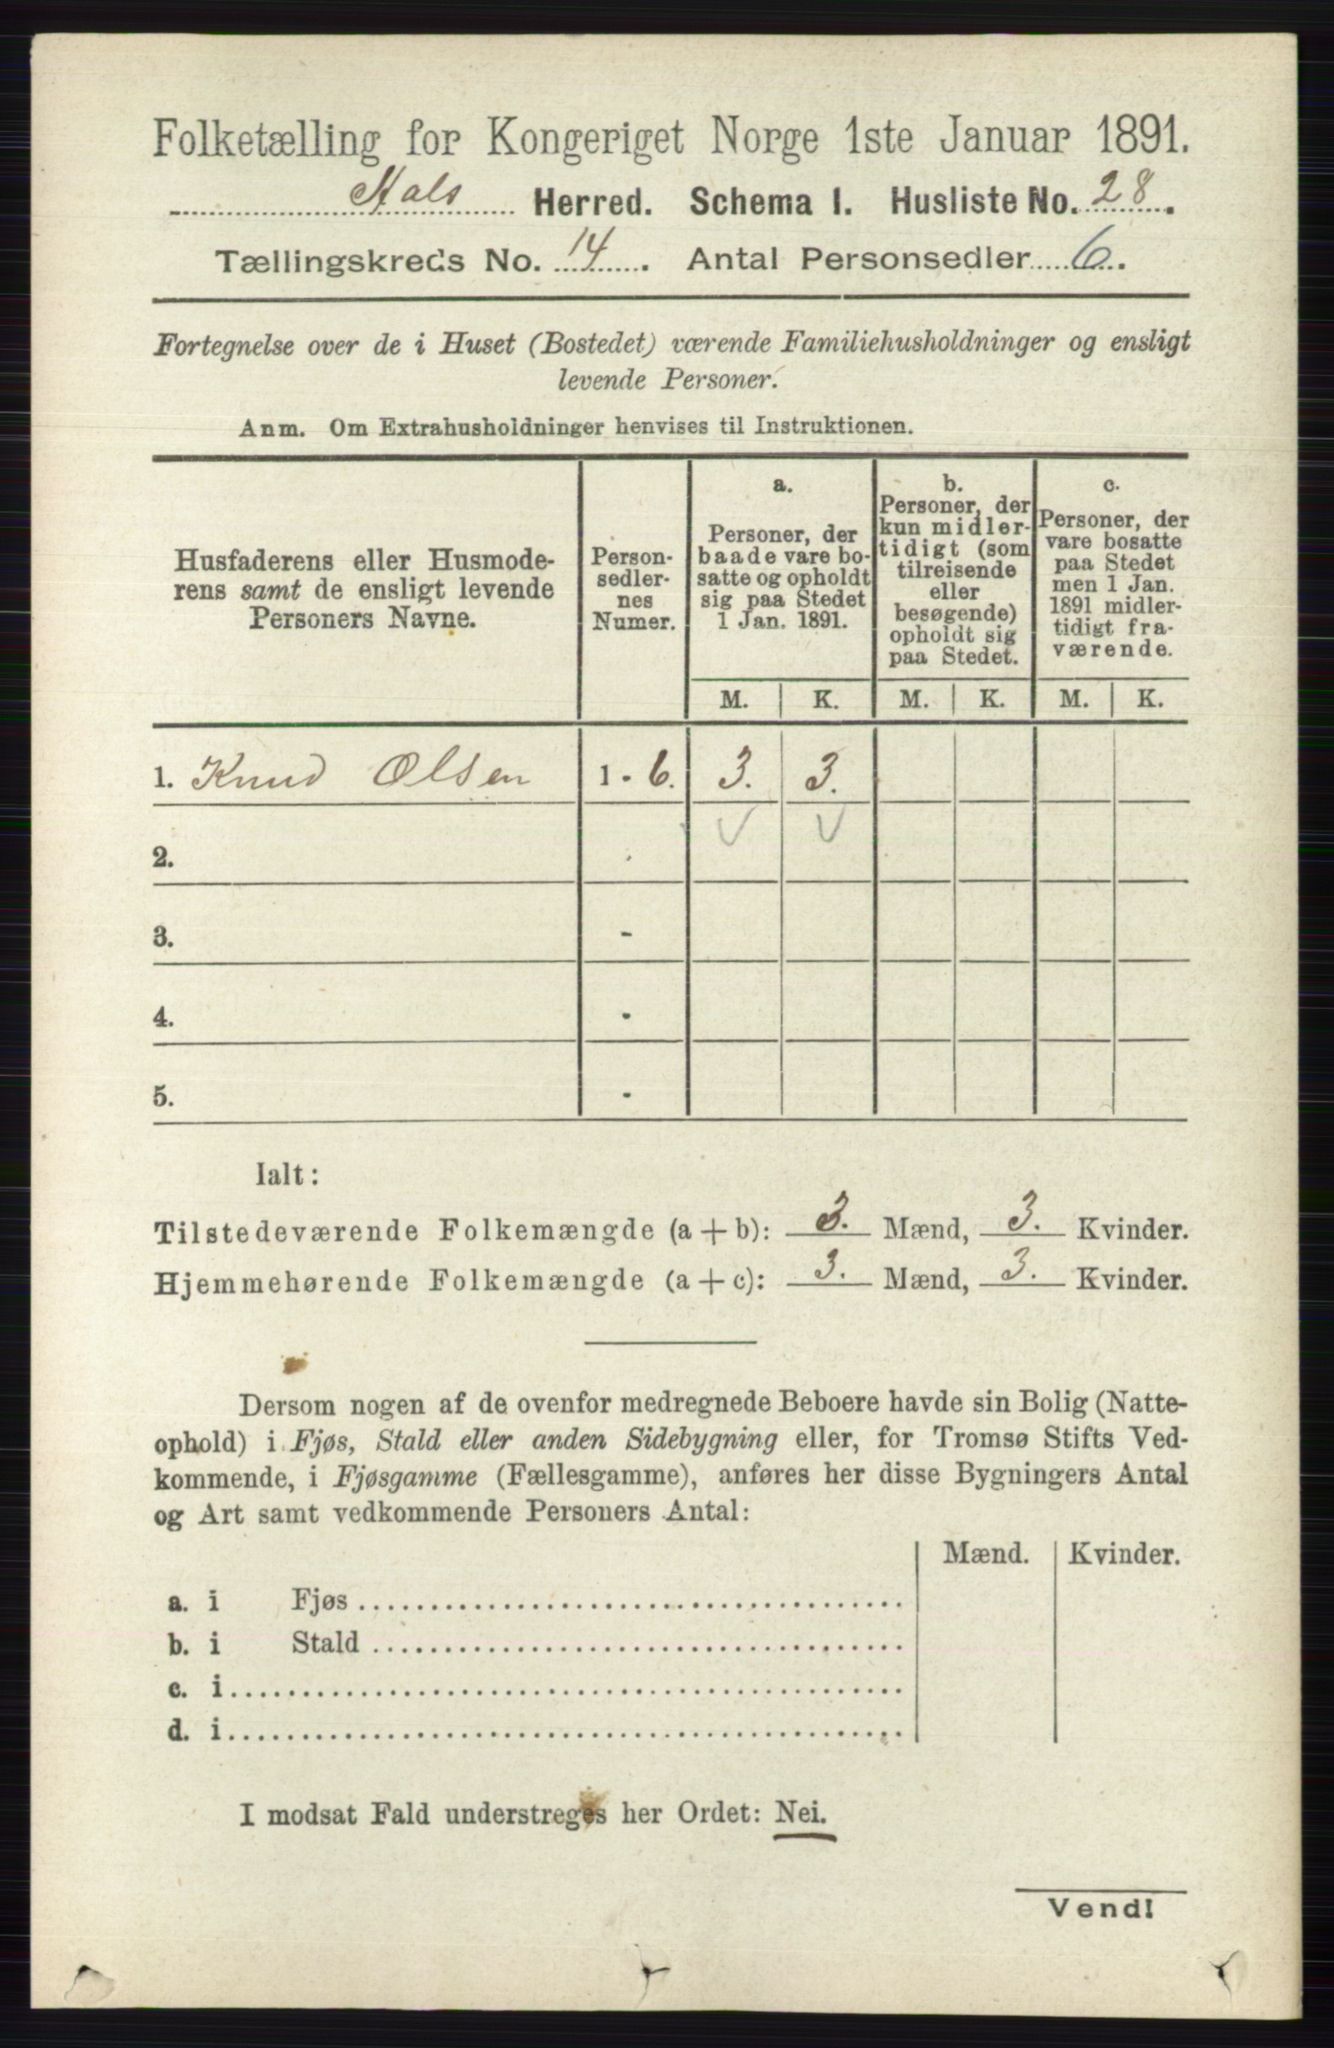 Folketælling for Kongeriget Norge 1ste Januar 1891.
Aals Herred. Schema I. Husliste No. 28.
Tællingskreds No. 14. Antal Personsedler 6.
Fortegnelse over de i Huset (Bostedet) værende Familiehusholdninger og ensligt
levende Personer.
Anm. Om Extrahusholdninger henvises til Instruktionen.
Husfaderens eller Husmode-
rens samt de ensligt levende
Personers Navne.
Person-
sedler-
nes
Numer.
a.
Personer, der
baade vare bo-
satte og opholdt
sig paa Stedet
1 Jan. 1891.
b.
Personer, der
kun midler-
tidigt (som
tilreisende
eller
besøgende)
opholdt sig
paa Stedet.
c.
Personer, der
vare bosatte
paa Stedet
men 1 Jan.
1891 midler-
tidigt fra-
værende.
M. K. M. K. M. K.
1. Knud Olsen 1 - 6. 3. 3.
2.
3. -
4. -
5. -
Ialt:
Tilstedeværende Folkemængde (a + b): 3. Mænd, 3. Kvinder.
Hjemmehørende Folkemængde (a + c): 3. Mænd, 3. Kvinder.
Dersom nogen af de ovenfor medregnede Beboere havde sin Bolig (Natte-
ophold) i Fjøs, Stald eller anden Sidebygning eller, for Tromsø Stifts Ved-
kommende, i Fjøsgamme (Fællesgamme), anføres her disse Bygningers Antal
og Art samt vedkommende Personers Antal:
Mænd. Kvinder.
a. i Fjøs
b. i Stald
c. i
d. i
I modsat Fald understreges her Ordet: Nei.
Vend!